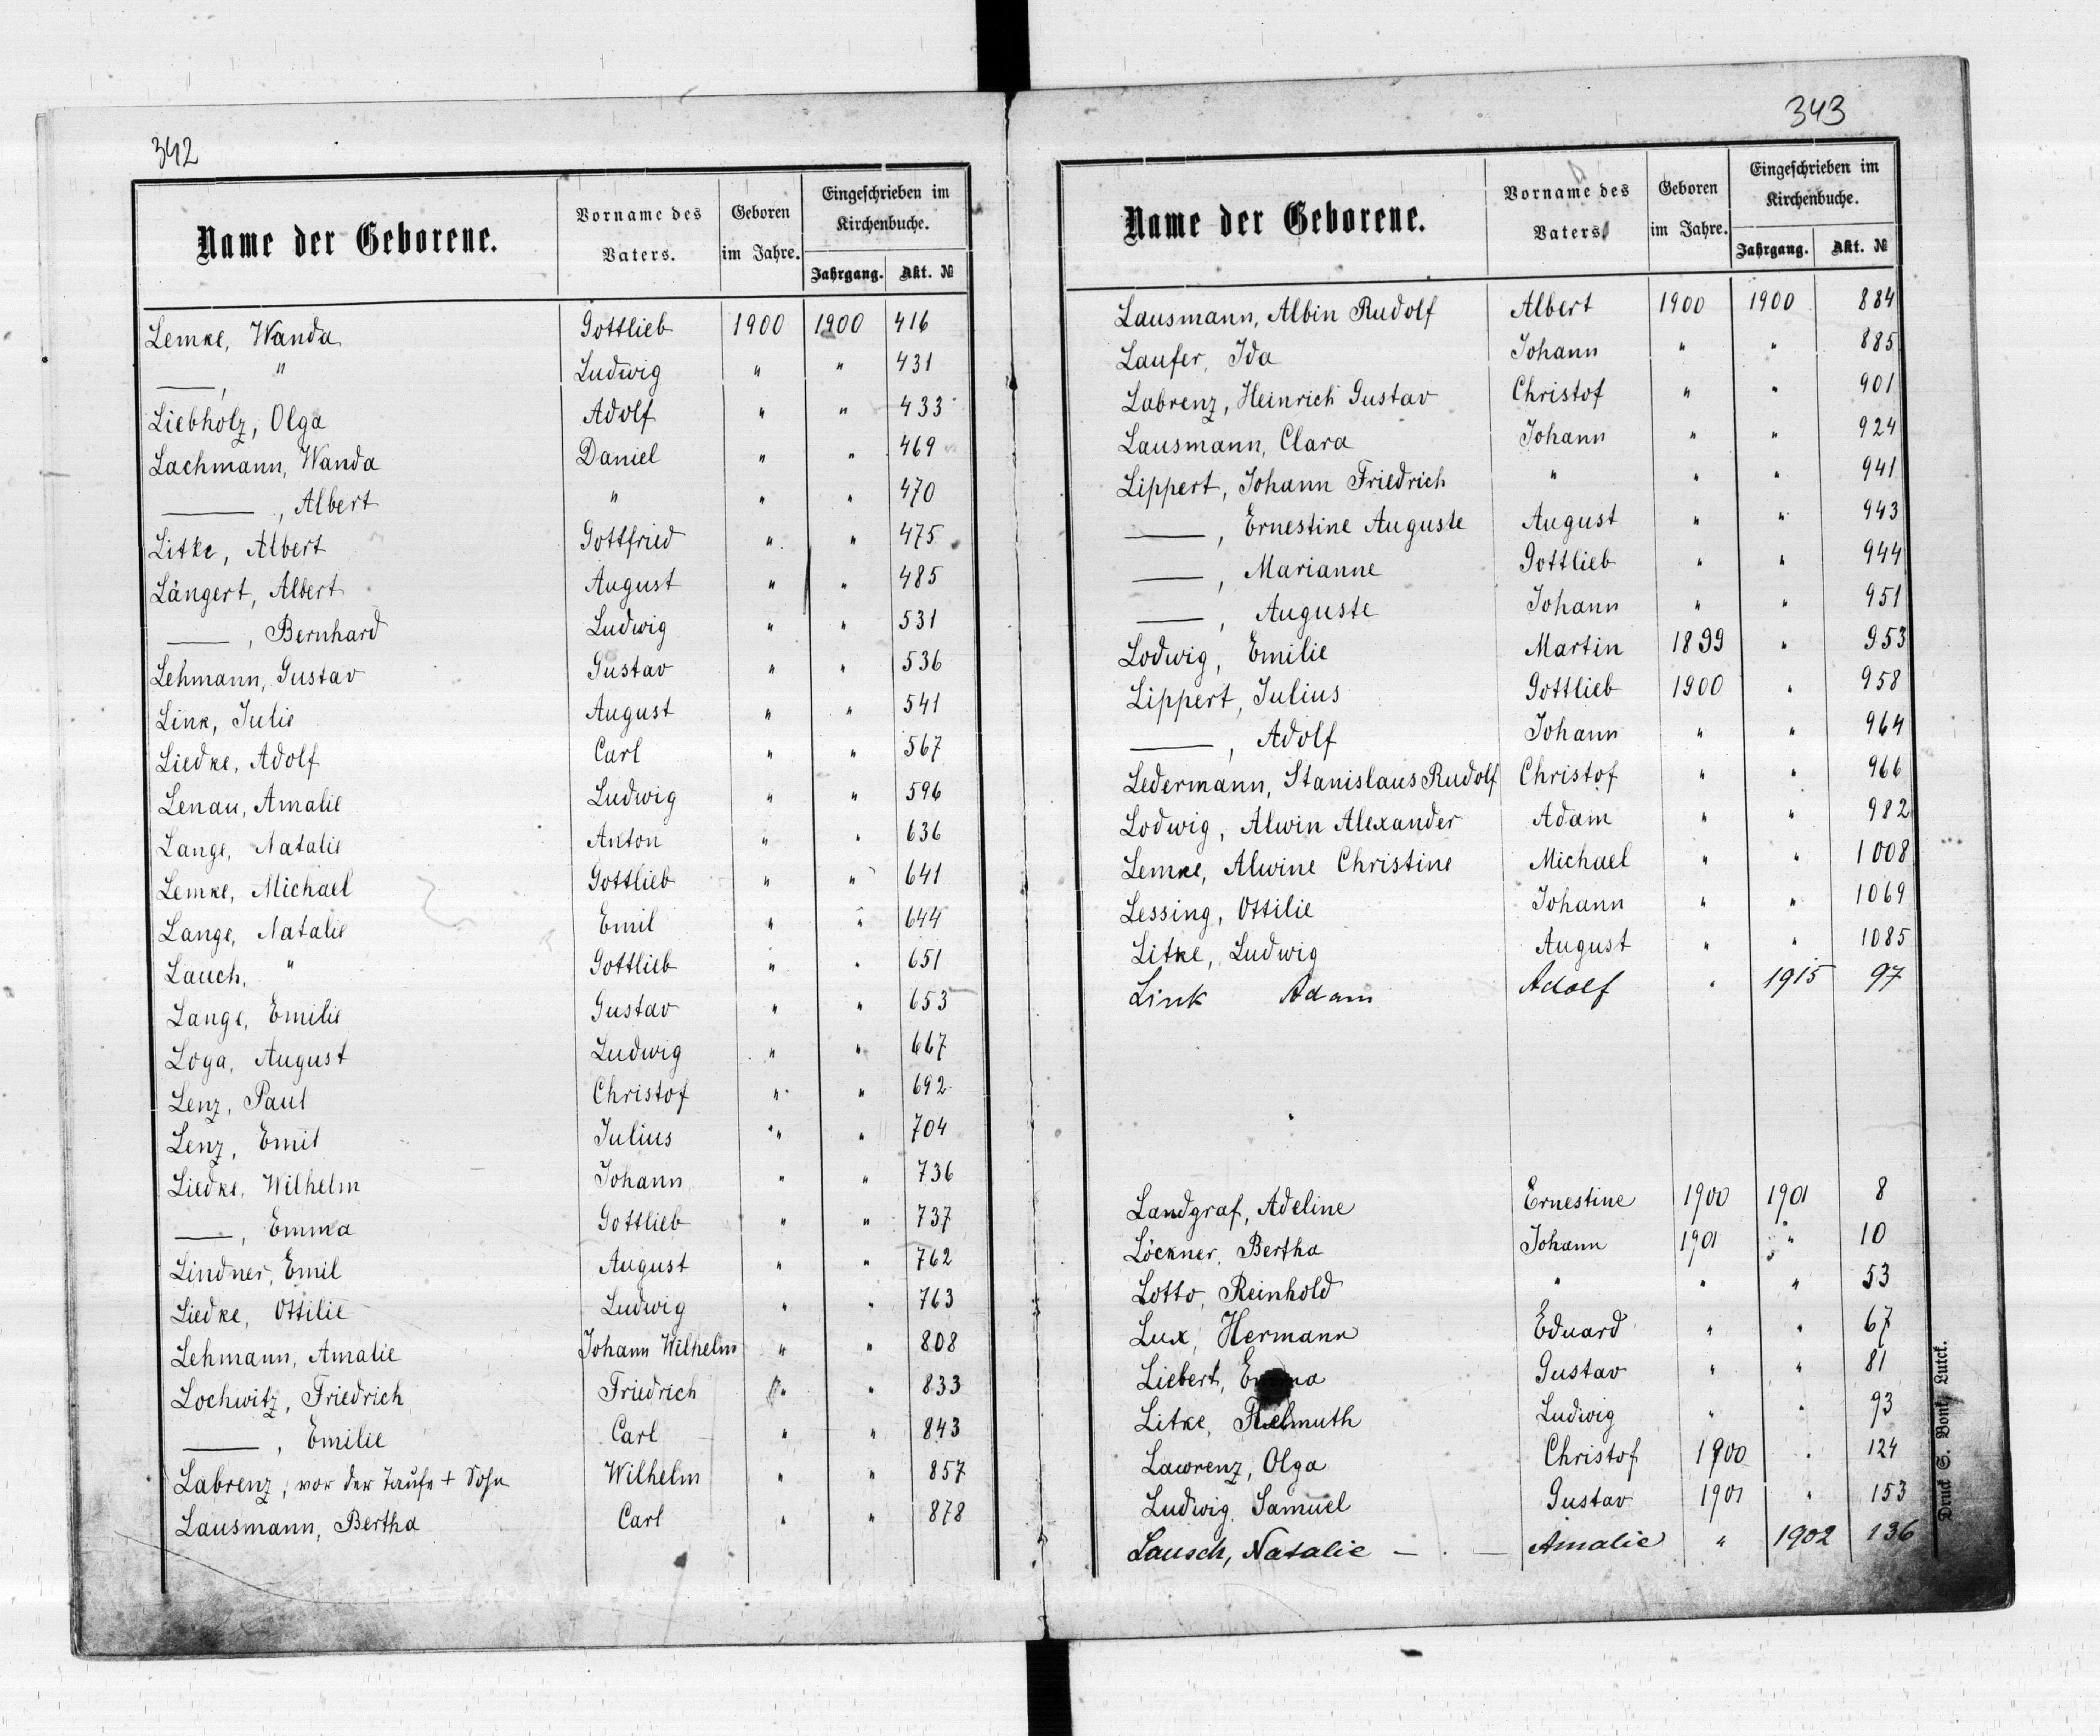 342
Name der Geborene. Vorname des Vaters. Geboren im Jahre. Eingeschrieben im Kirchenbuche. Jahrgang. Akt. №
Lemke, Wanda Gottlieb 1900 1900 416
——, " Ludwig " " 431
Liebholz, Olga Adolf " " 433
Lachmann, Wanda Daniel " " 469
——, Albert " " " 470
Litke, Albert Gottfried " " 475
Längert, Albert August " " 485
——, Bernhard Ludwig " " 531
Lehmann, Gustav Gustav " " 536
Link, Julie August " " 541
Liedke, Adolf Carl " " 567
Lenau, Amalie Ludwig " " 596
Lange, Natalie Anton " " 636
Lemke, Michael Gottlieb " " 641
Lange, Natalie Emil " " 644
Lauch, " Gottlieb " " 651
Lange, Emilie Gustav " " 653
Loga, August Ludwig " " 667
Lenz, Paul Christof " " 692
Lenz, Emil Julius " " 704
Liedke, Wilhelm Johann " " 736
——, Emma Gottlieb " " 737
Lindner, Emil August " " 762
Liedke, Ottilie Ludwig " " 763
Lehmann, Amalie Johann Wilhelm " " 808
Lochwitz, Friedrich Friedrich " " 833
——, Emilie Carl " " 843
Labrenz, vor der Taufe + Sohn Wilhelm " " 857
Lausmann, Bertha Carl " " 878
343
Name der Geborene. Vorname des Vaters. Geboren im Jahre. Eingeschrieben im Kirchenbuche. Jahrgang. Akt. №
Lausmann, Albin Rudolf Albert 1900 1900 884
Laufer, Ida Johann " " 885
Labrenz, Heinrich Gustav Christof " " 901
Lausmann, Clara Johann " " 924
Lippert, Johann Friedrich " " " 941
——, Ernestine Auguste August " " 943
——, Marianne Gottlieb " " 944
——, Auguste Johann " " 951
Lodwig, Emilie Martin 1899 " 953
Lippert, Julius Gottlieb 1900 " 958
——, Adolf Johann " " 964
Ledermann, Stanislaus Rudolf Christof " " 966
Lodwig, Alwin Alexander Adam " " 982
Lemke, Alwine Christine Michael " " 1008
Lessing, Ottilie Johann " " 1069
Litke, Ludwig August " " 1085
Link Adam Adolf " 1915 97
Landgraf, Adeline Ernestine 1900 1901 8
Löckner, Bertha Johann 1901 " 10
Lotto, Reinhold " " " 53
Lux, Hermann Eduard " " 67
Liebert, Gustav " " 81
Litke, Helmuth Ludwig " " 93
Lawrenz, Olga Christof 1900 " 124
Ludwig, Samuel Gustav 1901 " 153
Lausch, Natalie — — Amalie " 1902 136
Druck S. Bonk, Lutck.